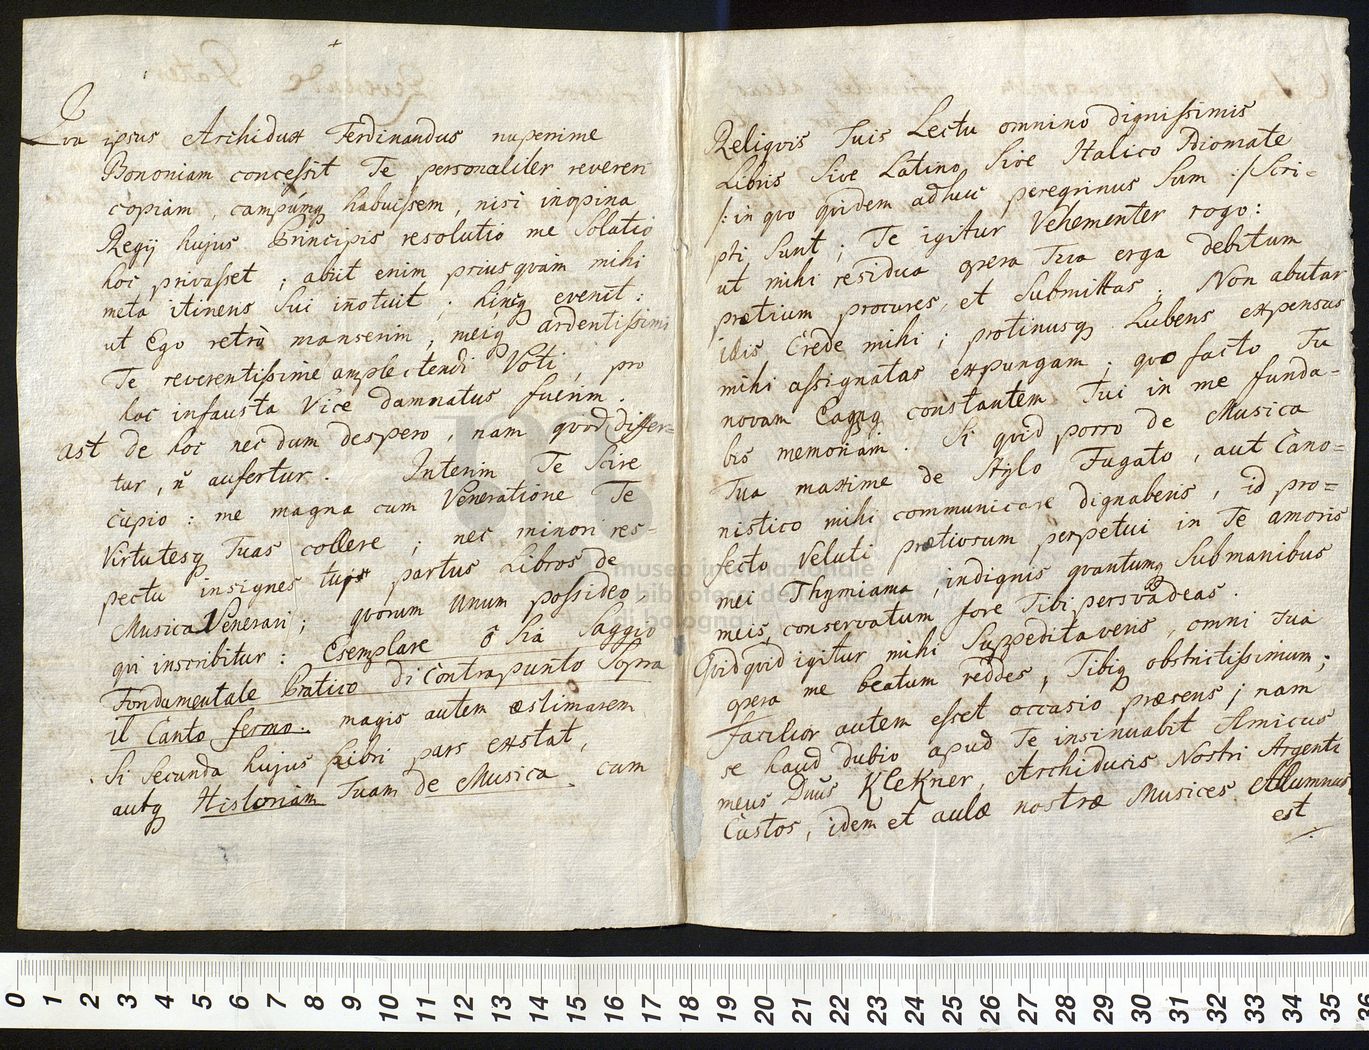 Qua ipsus Archidux Ferdinandus nuperrime
Bononiam concessit Te personaliter reveren
copiam, campúmq habuissem, nisi inopina
Regij hujus Principis resolutio me Solatio
hoc privasset; abiit enim priusquàm mihi
meta itineris Sui inotuit; hincq evenit:
ut Ego retrò manserim, meiq ardentissimi
Te reverentissime amplectendi Voti, pro
hac infausta Vice damnatus fuerim.
ast de hoc nec dum despero, nam quod differ=
tur, ñ aufertur. Interim Te Scire
Cupio: me magna cum Veneratione Te
Virtutesq Tuas collere; nec minori res=
pectu insignes partus Libros de
Musica Venerari; quorum Unum possideo
qui inscribitur: Esemplare ô Sia Saggio
Fondamentale Pratico di Contrapunto Sopra
il Canto fermo. magis autem æstimarem
Si Secunda hujus Libri pars exstat,
autq Historiam Tuam de Musica. cum
Reliqvis Tuis Lectu omnino dignissimis
Libris Sive Latino, Sive Italico Idiomate
/: in quo quidem adhuc peregrinus Sum :/ Scri=
pti Sunt; Te igitur Vehementer rogo:
ut mihi residua opera Tua erga debitum
prætium procures, et Submittas; Non abutar
idis Crede mihi; protinusq Lubens expensas
mihi assignatas expungam; quo facto Tu
novam Eamq constantem Tui in me funda=
bis memoriam. Si quid porro de Musica
Tua maxime de Stylo Fugato, aut Cano=
nistico mihi communicare dignaberis, id pro=
fecto Veluti prætiosum perpetui in Te amoris
mei Thymiama, indignis quantumq Submanibus
meis, conservatum fore Tibi persvadeas.
Quidquid igitur mihi Suppeditaveris, omni Tua
opera me beatum reddes, Tibiq obstrictissimum;
facilior autem esset occasio præsens; nam
se haud dubio apud Te insinuabit Amicus
meus Dnus Klekner, Archiducis Nostri Argenti
Custos, idem et aulæ nostræ Musices Alumnus
est
museo internazionale
biblioteca della musica
di bologna
0 1 2 3 4 5 6 7 8 9 10 11 12 13 14 15 16 17 18 19 20 21 22 23 24 25 26 27 28 29 30 31 32 33 34 35 36